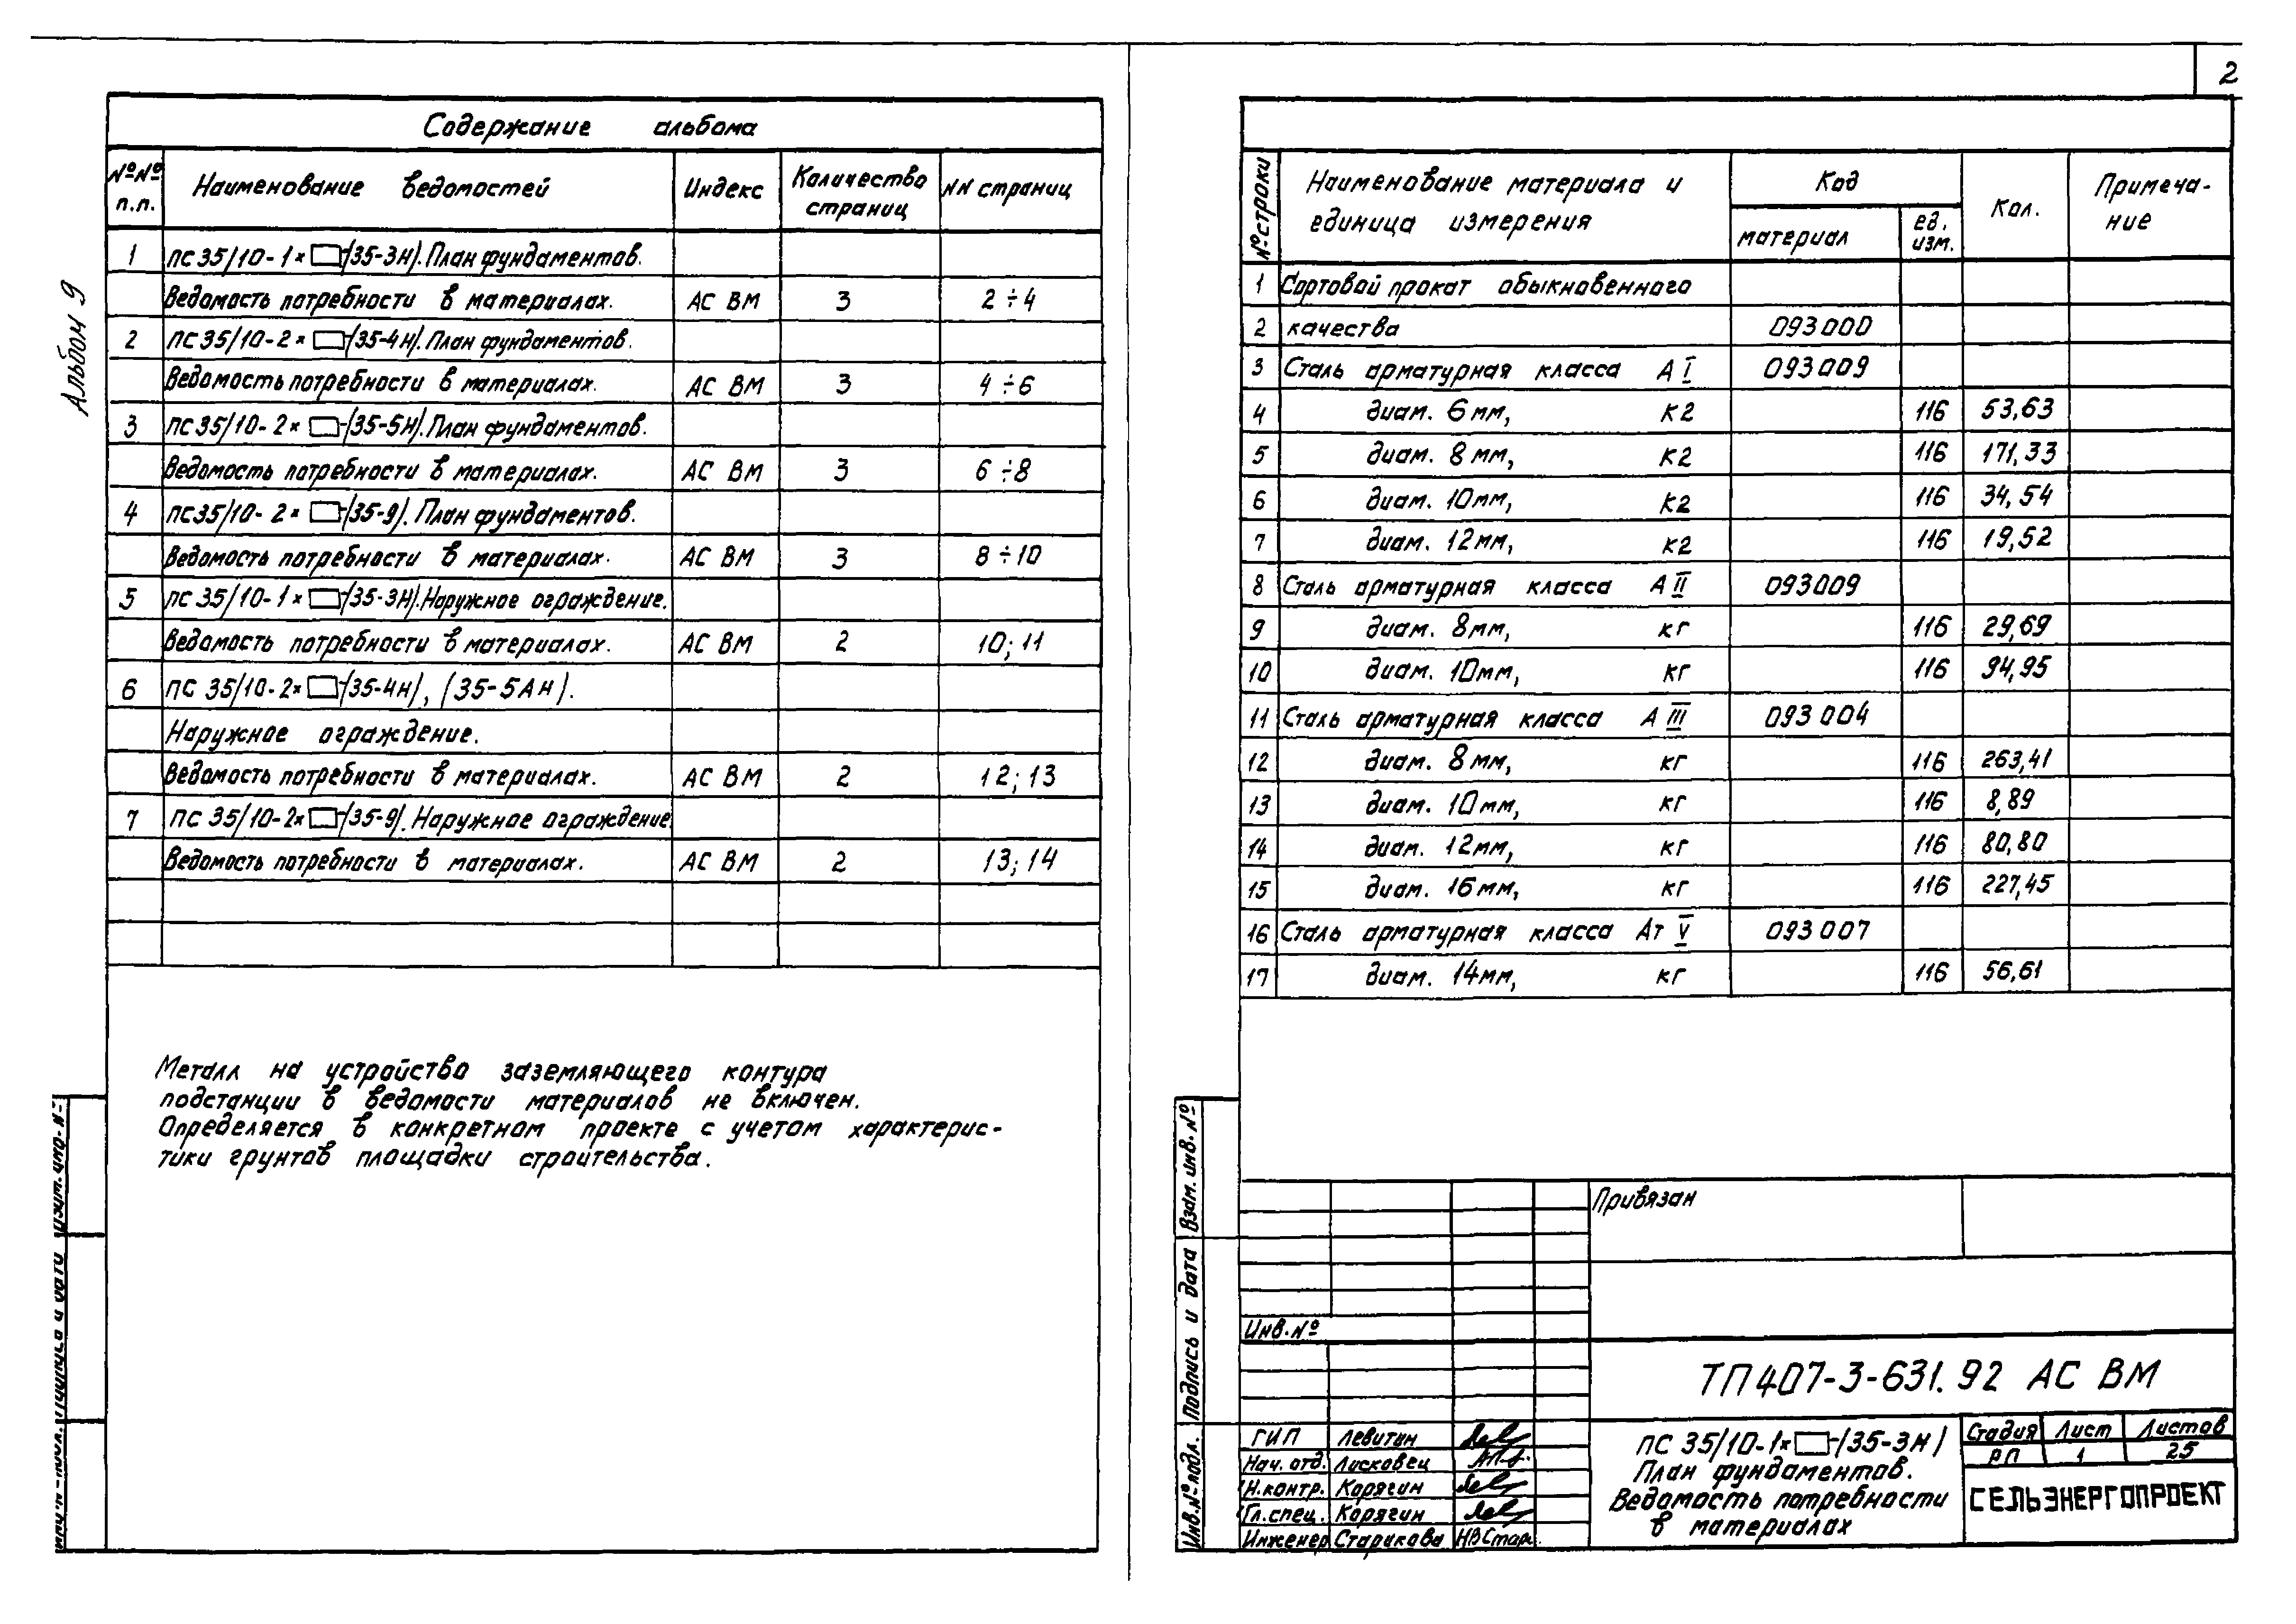 2
Альбом 9
Содержание альбома
№№ п.п. Наименование ведомостей Индекс Количество страниц NN страниц
1 ПС 35/10-1×□-(35-3Н). План фундаментов.
Ведомость потребности в материалах. АС ВМ 3 2÷4
2 ПС 35/10-2×□-(35-4Н). План фундаментов.
Ведомость потребности в материалах. АС ВМ 3 4÷6
3 ПС 35/10-2×□-(35-5Н). План фундаментов.
Ведомость потребности в материалах. АС ВМ 3 6÷8
4 ПС 35/10-2×□-(35-9). План фундаментов.
Ведомость потребности в материалах. АС ВМ 3 8÷10
5 ПС 35/10-1×□-(35-3Н). Наружное ограждение.
Ведомость потребности в материалах. АС ВМ 2 10; 11
6 ПС 35/10-2×□-(35-4Н), (35-5АН).
Наружное ограждение.
Ведомость потребности в материалах. АС ВМ 2 12; 13
7 ПС 35/10-2×□-(35-9). Наружное ограждение.
Ведомость потребности в материалах. АС ВМ 2 13; 14
Металл на устройство заземляющего контура
подстанции в ведомости материалов не включен.
Определяется в конкретном проекте с учетом характерис-
тики грунтов площадки строительства.
№ строки Наименование материала и единица измерения Код материал ед. изм. Кол. Примеча-ние
1 Сортовой прокат обыкновенного
2 качества 093000
3 Сталь арматурная класса А I 093009
4 диам. 6мм, кг 116 53,63
5 диам. 8мм, кг 116 171,33
6 диам. 10мм, кг 116 34,54
7 диам. 12мм, кг 116 19,52
8 Сталь арматурная класса А II 093009
9 диам. 8мм, кг 116 29,69
10 диам. 10мм, кг 116 94,95
11 Сталь арматурная класса А III 093004
12 диам. 8мм, кг 116 263,41
13 диам. 10мм, кг 116 8,89
14 диам. 12мм, кг 116 80,80
15 диам. 16мм, кг 116 227,45
16 Сталь арматурная класса Ат V 093007
17 диам. 14мм, кг 116 56,61
Взам. инв. №
Подпись и дата
Инв. № подл.
Привязан
Инв. №
ТП 407-3-631.92 АС ВМ
ГИП Левитан
Нач. отд. Лисковец
Н.контр. Карягин
Гл.спец. Карягин
Инженер Старикова НВСтар.
ПС 35/10-1×□-(35-3Н)
План фундаментов.
Ведомость потребности
в материалах
Стадия Лист Листов
РП 1 25
СЕЛЬЭНЕРГОПРОЕКТ